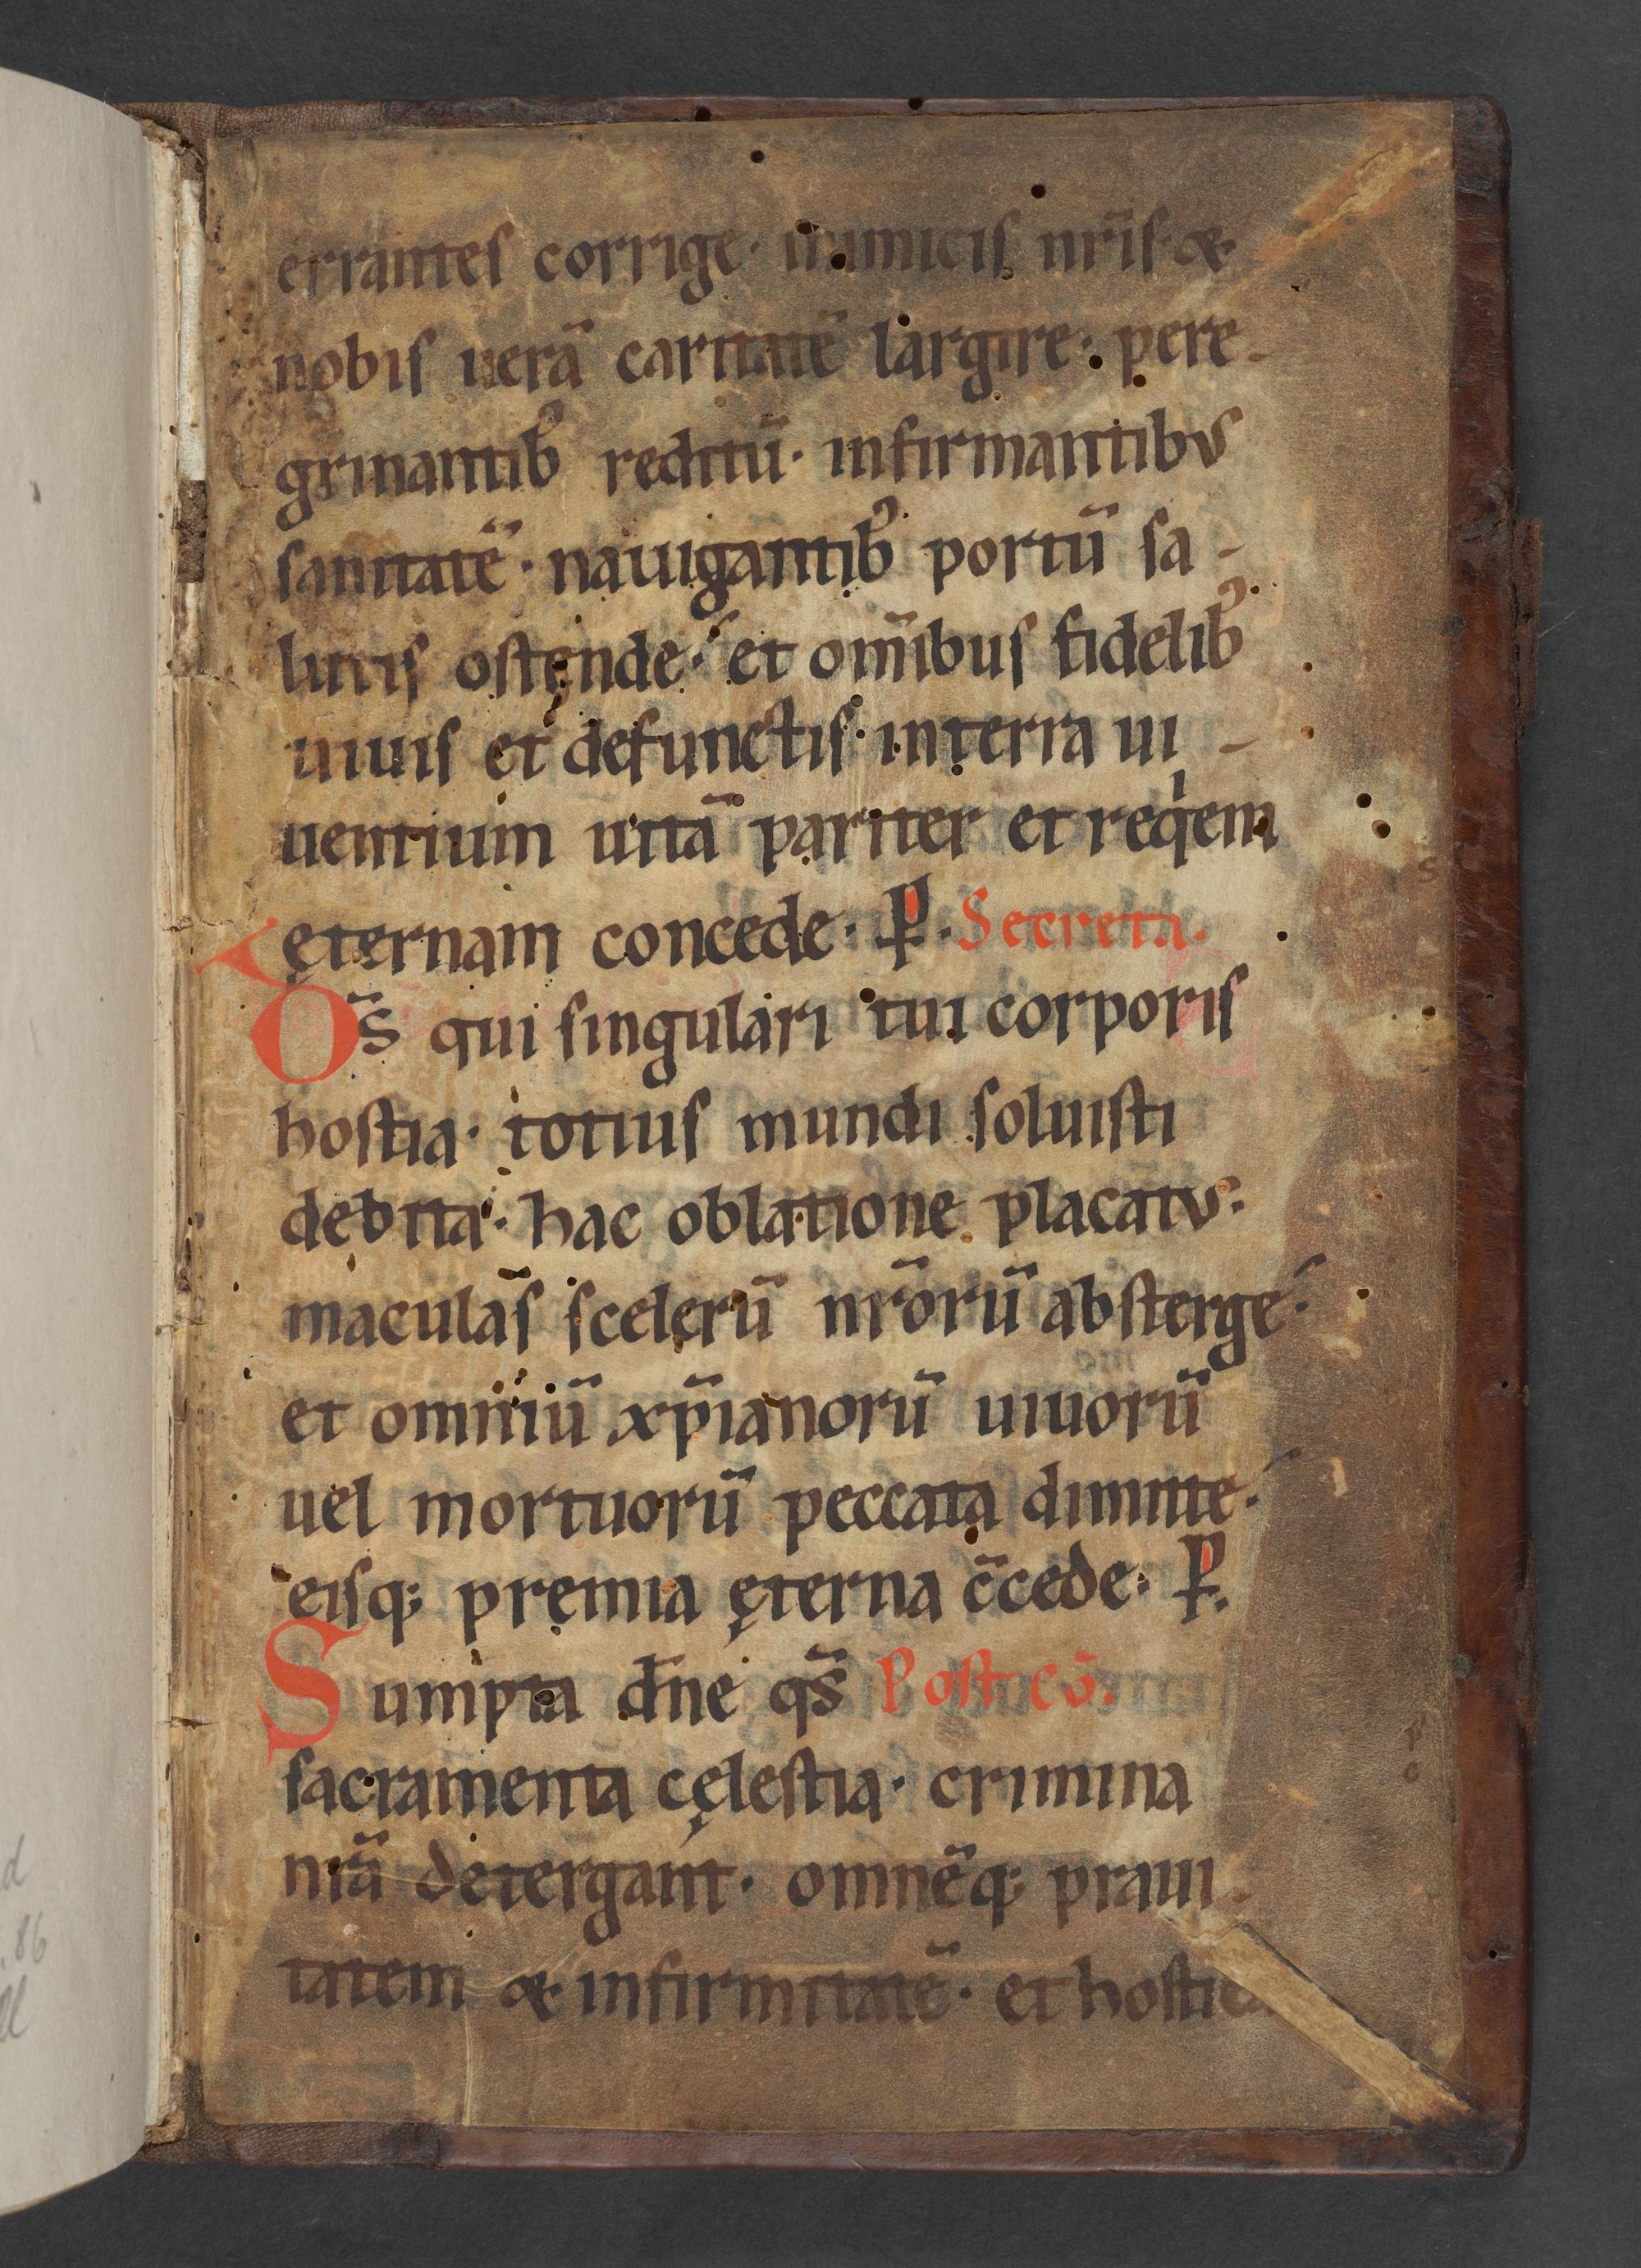 errantes corrige· inimicis nr̄is· &·
nobis uerā caritatē largire· pere-
grinantibꝰ reditū· infirmantibus
sanitatē· nauigantibꝰ portū sa-
lutis ostende· et om̄ibus fidelibꝰ
uiuis et defunctis· in terra ui-
uentium uitā pariter et reqͥem
ęternam concede· P. Secreta.
D̄s qui singulari tui corporis
hostia· totius mundi soluisti
debita· hac oblatione placatus·
maculas scelerū nr̄orū absterge·
et omniū xp̄ianorū uiuorū
uel mortuorū peccata dimitte·
eisq; premia ęterna c̄cede· P.
Sumpta dn̄e qs̄ Post cō.
sacramenta cęlestia· crimina
nr̄a detergant· omnēq; praui-
tatem & infirmitatē· et hostica
d
.86